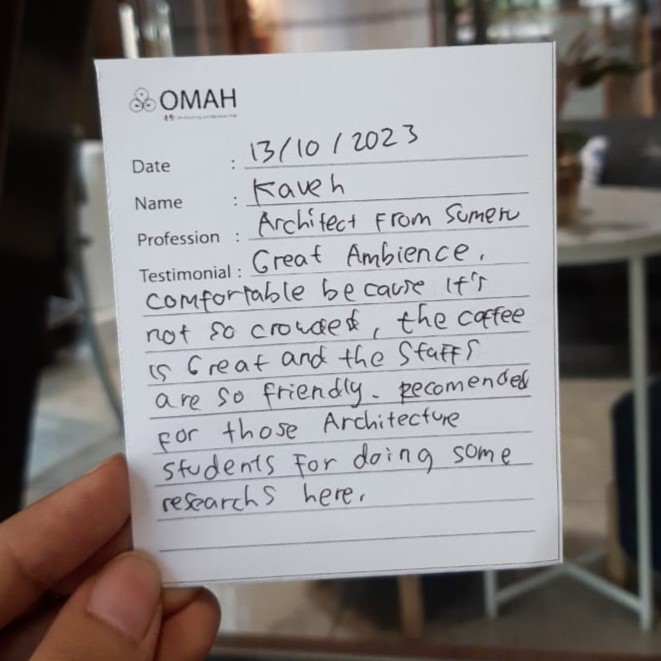 OMAH
Date : 13/10/2023
Name : Kaveh
Profession : Architect From Sumeru
Testimonial : Great Ambience.
comfortable because it's
not so crowded, the coffee
is Great and the staffs
are so friendly. recomended
for those Architecture
students for doing some
researchs here.